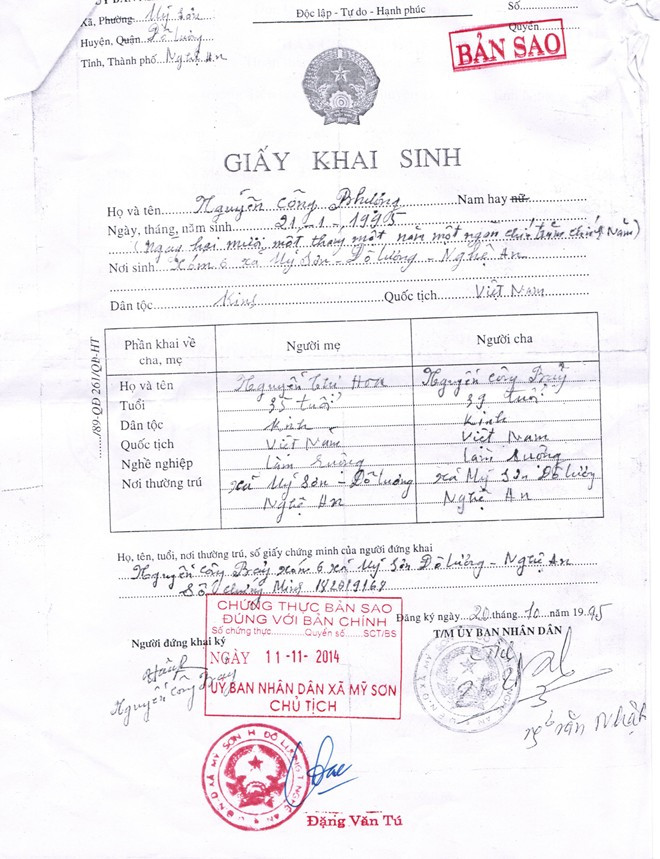 Xã, Phường Mỹ Sơn
Huyện, Quận Đô Lương
Tỉnh, Thành phố Nghệ An
Độc lập - Tự do - Hạnh phúc
Số
Quyển
BẢN SAO
GIẤY KHAI SINH
Họ và tên Nguyễn Công Phượng Nam hay nữ
Ngày, tháng, năm sinh 21-1-1995
(Ngày hai mươi một tháng một năm một ngàn chín trăm chín năm)
Nơi sinh Xóm 6 xã Mỹ Sơn - Đô Lương - Nghệ An
Dân tộc Kinh Quốc tịch Việt Nam
...../89-QĐ 261/QĐ-HT
Phần khai về cha, mẹ Người mẹ Người cha
Họ và tên Nguyễn Thị Hoa Nguyễn Công Bảy
Tuổi 35 tuổi 39 tuổi
Dân tộc Kinh Kinh
Quốc tịch Việt Nam Việt Nam
Nghề nghiệp Làm Ruộng Làm Ruộng
Nơi thường trú Xã Mỹ Sơn - Đô Lương Xã Mỹ Sơn Đô Lương
Nghệ An Nghệ An
Họ, tên, tuổi, nơi thường trú, số giấy chứng minh của người đứng khai
Nguyễn Công Bảy xóm 6 xã Mỹ Sơn Đô Lương - Nghệ An
Số chứng Minh 182019168
CHỨNG THỰC BẢN SAO
ĐÚNG VỚI BẢN CHÍNH
Số chứng thực Quyển số SCT/BS
NGÀY 11-11-2014
ỦY BAN NHÂN DÂN XÃ MỸ SƠN
CHỦ TỊCH
Đăng ký ngày 20 tháng 10 năm 1995
Người đứng khai ký
T/M ỦY BAN NHÂN DÂN
Nguyễn Công Bảy
Đặng Văn Tú